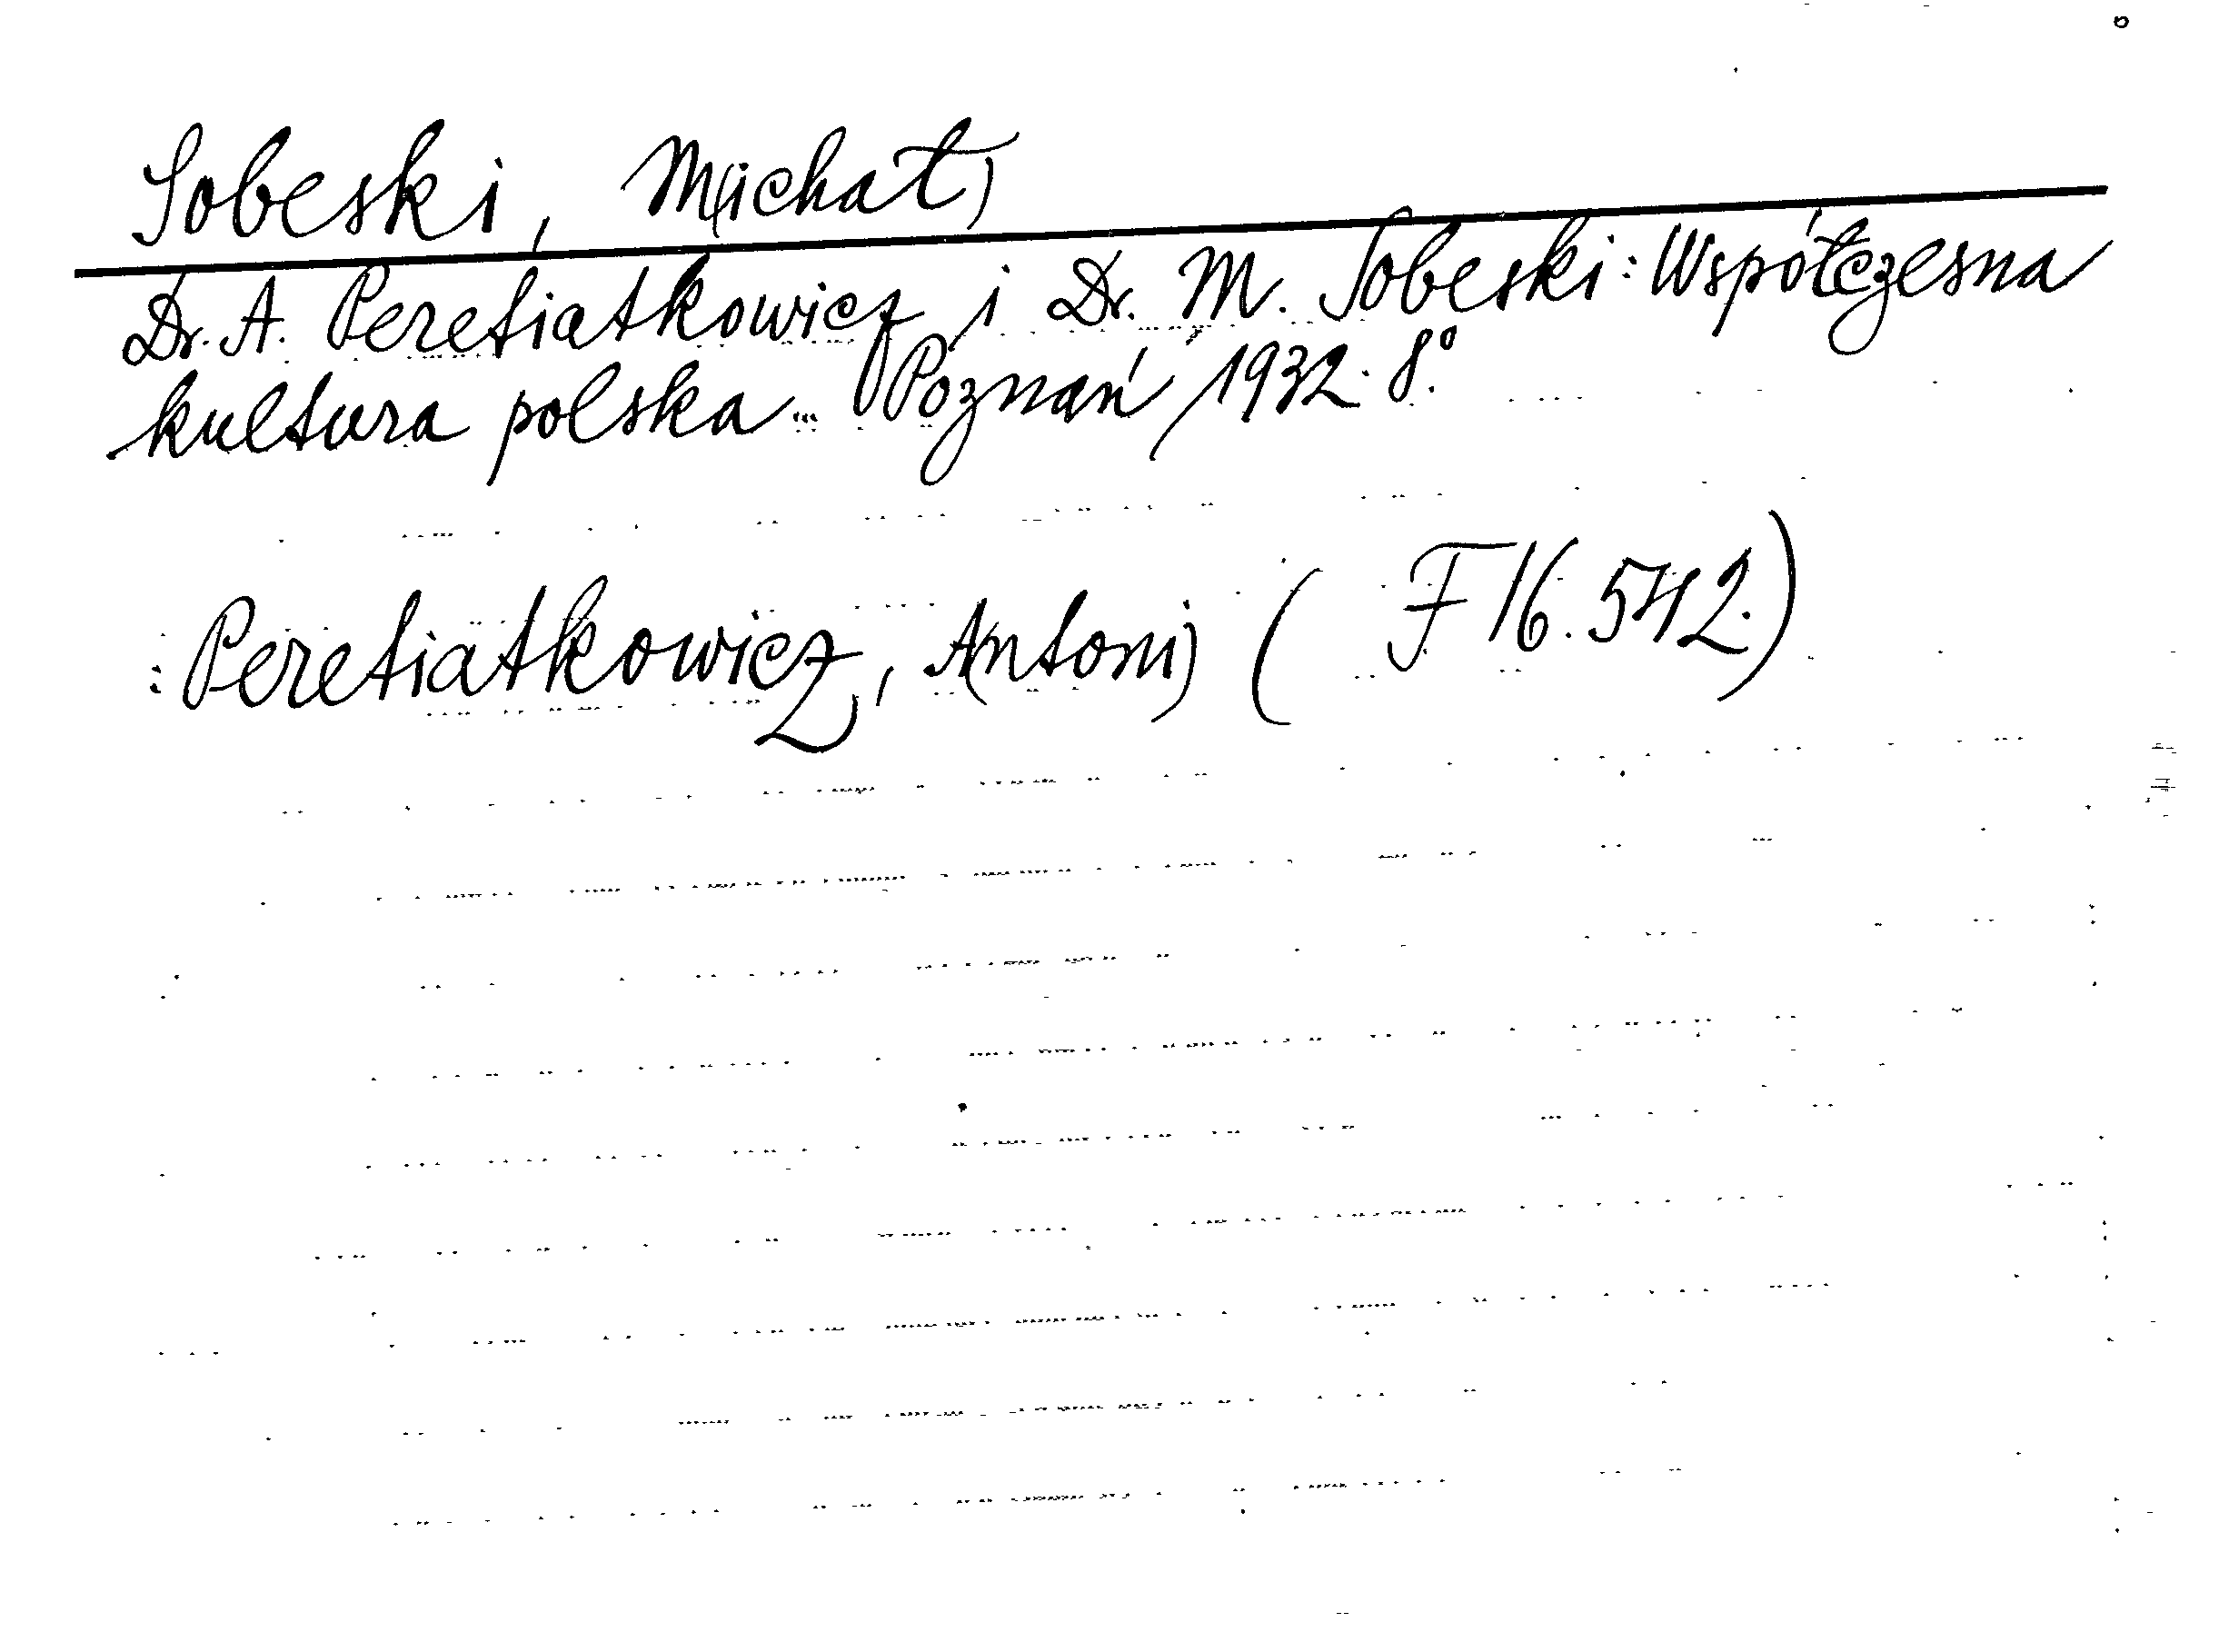 Sobeski, M(ichał)
Dr. A. Peretiatkowicz i Dr. M. Sobeski: Współczesna
kultura polska... Poznań, 1932. 8°.
: Peretiatkowicz, A(ntoni) ( F 16.542.)